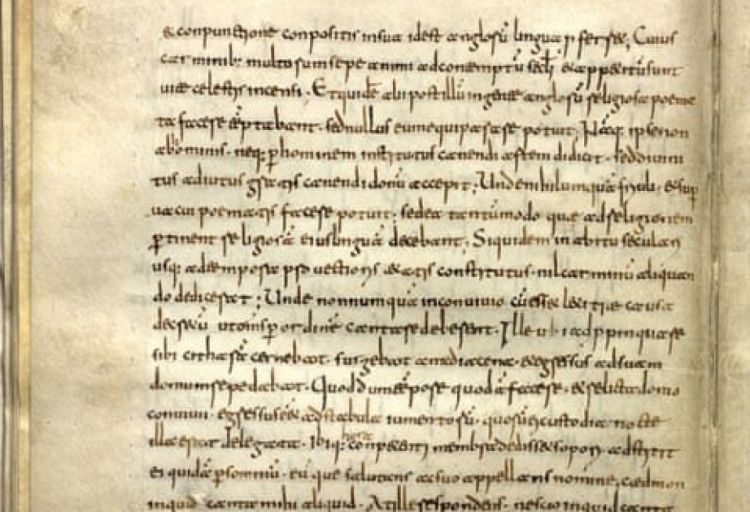 & conpunctione conpositis insua idest anglorū lingua ꝓferret; Cuius
carminibꝫ multorum sepe animi adcontemptū secli & appetitū sunt
uitæ celestis incensi. Et quidē alii post illū ingente anglorū religiosa poema
ta facere tēptabant. sed nullus eum equiparare potuit; Náq; ipse non
ab hominibus. neq; ꝑ hominem institutus canendi artem didicit. sed diuini
tus adiutus gratis canendi donū accepit; Unde nihil umquā friuoli. & sup
uacui poematis facere potuit; sed ea tantūmodo que ad religionem
ꝑtinent religiosā eius linguā decebant; Siquidem in abitu seculari
usq; ad tempora ꝓuectioris ætatis constitutus. nil carminū aliquan
do dedicerat; Unde nonnumquā inconuiuio cū esset letitiæ causa
decretū ut omīs ꝑ ordinē cantare deberent. Ille ubi adppinquare
sibi citharā cernebat. surgebat a media cena. & egressus ad suam
domum repedabat; Quod dum tēpore quodā faceret. & relicta domo
conuiuii. egressus eēt ad stabula iumentorū. quorū ei custodia nocte
illa erat delegata. Ibiq; hora conpetenti membra dedisset sopori. adstitit
ei quidā ꝑ somniū. eūque salutans ac suo appellans nomine. cædmon
inquid canta mihi aliquid. At ille respondens. nescio inquid canta